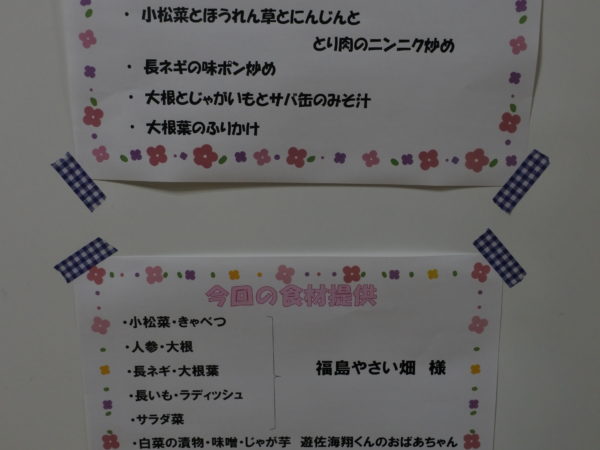 ・ 小松菜とほうれん草とにんじんと
とり肉のニンニク炒め
・ 長ネギの味ポン炒め
・ 大根とじゃがいもとサバ缶のみそ汁
・ 大根葉のふりかけ
今回の食材提供
・小松菜・きゃべつ
・人参・大根
・長ネギ・大根葉
・長いも・ラディッシュ
・サラダ菜
福島やさい畑 様
・白菜の漬物・味噌・じゃが芋 遊佐海翔くんのおばあちゃん